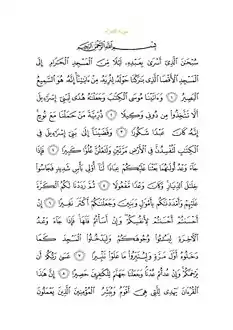 سورة الإسراء
بِسْمِ اللَّهِ الرَّحْمَٰنِ الرَّحِيمِ
سُبْحَٰنَ الَّذِي أَسْرَىٰ بِعَبْدِهِ لَيْلًا مِّنَ الْمَسْجِدِ الْحَرَامِ إِلَى
الْمَسْجِدِ الْأَقْصَا الَّذِي بَٰرَكْنَا حَوْلَهُ لِنُرِيَهُ مِنْ ءَايَٰتِنَا إِنَّهُ هُوَ السَّمِيعُ
الْبَصِيرُ ١ وَءَاتَيْنَا مُوسَى الْكِتَٰبَ وَجَعَلْنَٰهُ هُدًى لِّبَنِي إِسْرَٰءِيلَ
أَلَّا تَتَّخِذُوا مِن دُونِي وَكِيلًا ٢ ذُرِّيَّةَ مَنْ حَمَلْنَا مَعَ نُوحٍ
إِنَّهُ كَانَ عَبْدًا شَكُورًا ٣ وَقَضَيْنَا إِلَىٰ بَنِي إِسْرَٰءِيلَ فِي
الْكِتَٰبِ لَتُفْسِدُنَّ فِي الْأَرْضِ مَرَّتَيْنِ وَلَتَعْلُنَّ عُلُوًّا كَبِيرًا ٤ فَإِذَا
جَاءَ وَعْدُ أُولَىٰهُمَا بَعَثْنَا عَلَيْكُمْ عِبَادًا لَّنَا أُولِي بَأْسٍ شَدِيدٍ فَجَاسُوا
خِلَٰلَ الدِّيَارِ وَكَانَ وَعْدًا مَّفْعُولًا ٥ ثُمَّ رَدَدْنَا لَكُمُ الْكَرَّةَ
عَلَيْهِمْ وَأَمْدَدْنَٰكُم بِأَمْوَٰلٍ وَبَنِينَ وَجَعَلْنَٰكُمْ أَكْثَرَ نَفِيرًا ٦ إِنْ
أَحْسَنتُمْ أَحْسَنتُمْ لِأَنفُسِكُمْ وَإِنْ أَسَأْتُمْ فَلَهَا فَإِذَا جَاءَ وَعْدُ
الْءَاخِرَةِ لِيَسُۥءُوا وُجُوهَكُمْ وَلِيَدْخُلُوا الْمَسْجِدَ كَمَا
دَخَلُوهُ أَوَّلَ مَرَّةٍ وَلِيُتَبِّرُوا مَا عَلَوْا تَتْبِيرًا ٧ عَسَىٰ رَبُّكُمْ أَن
يَرْحَمَكُمْ وَإِنْ عُدتُّمْ عُدْنَا وَجَعَلْنَا جَهَنَّمَ لِلْكَٰفِرِينَ حَصِيرًا ٨ إِنَّ هَٰذَا
الْقُرْءَانَ يَهْدِي لِلَّتِي هِيَ أَقْوَمُ وَيُبَشِّرُ الْمُؤْمِنِينَ الَّذِينَ يَعْمَلُونَ